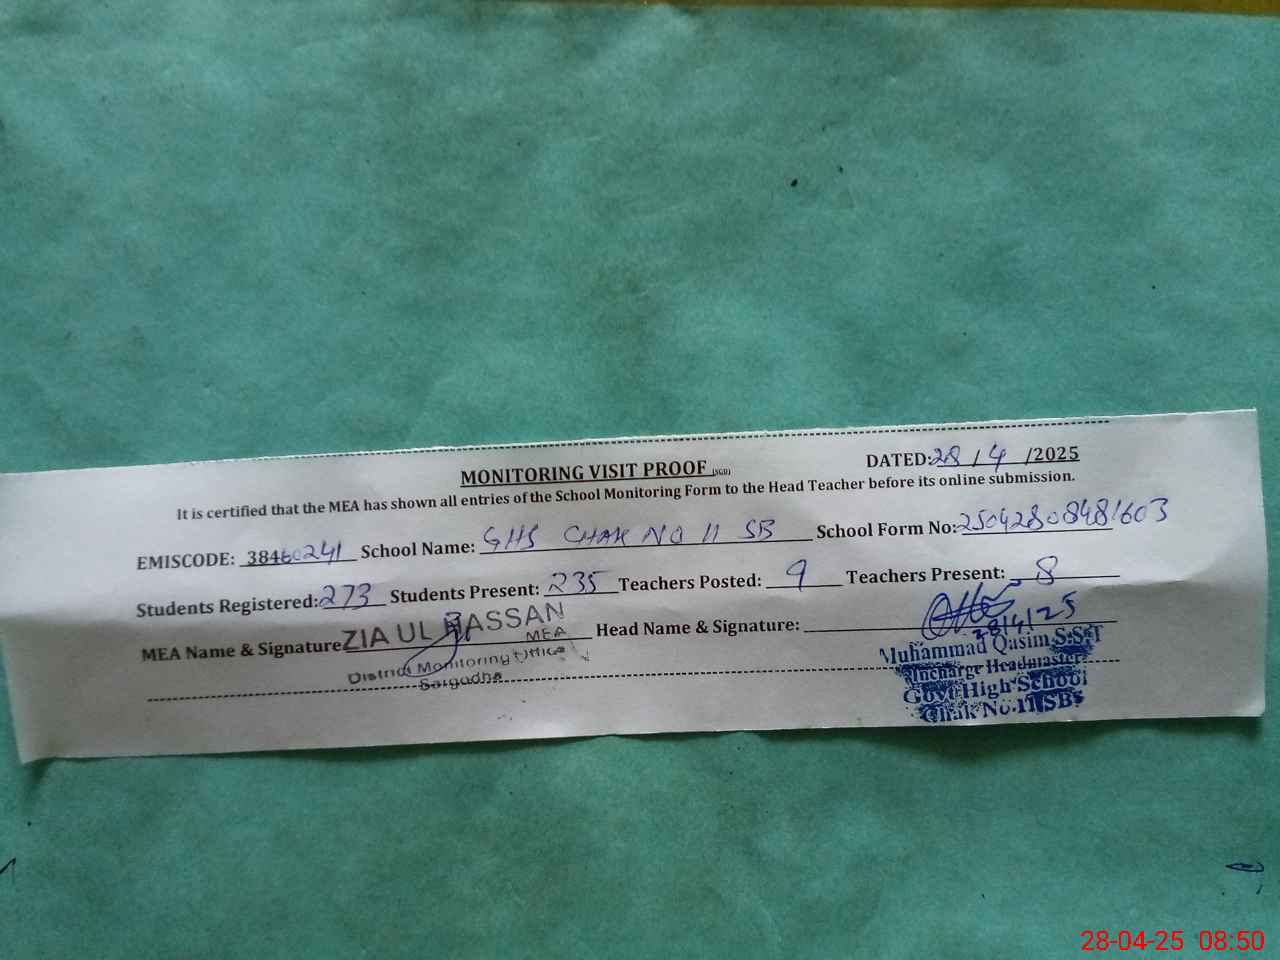 MONITORING VISIT PROOF (SGD) DATED: 28/4/2025
It is certified that the MEA has shown all entries of the School Monitoring Form to the Head Teacher before its online submission.
EMISCODE: 38460241 School Name: GHS CHAK NO 11 SB School Form No: 25042808481603
Students Registered: 273 Students Present: 235 Teachers Posted: 9 Teachers Present: 8
MEA Name & Signature ZIA UL HASSAN Head Name & Signature:
MEA
28/4/25
District Monitoring Office
Sargodha
Muhammad Qasim S.S.T
Incharge Headmaster
Govt High School
Chak No.11 SB
28-04-25 08:50